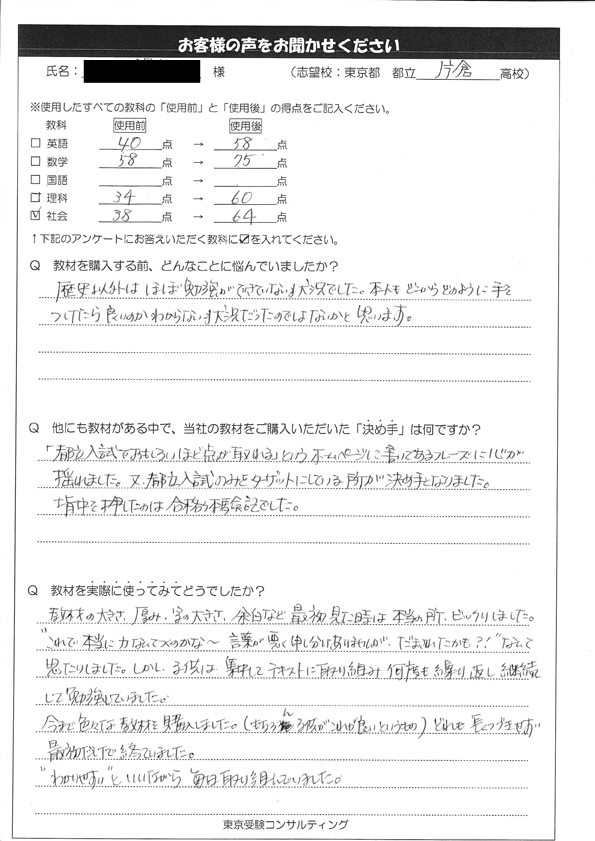 お客様の声をお聞かせください
氏名： 様 （志望校：東京都 都立 片倉 高校）
※使用したすべての教科の「使用前」と「使用後」の得点をご記入ください。
教科 使用前 使用後
□ 英語 40 点 → 58 点
□ 数学 58 点 → 75 点
□ 国語 点 → 点
□ 理科 34 点 → 60 点
☑ 社会 38 点 → 64 点
↑下記のアンケートにお答えいただく教科に☑を入れてください。
Q 教材を購入する前、どんなことに悩んでいましたか？
歴史以外は ほぼ勉強ができていない状況でした。本人も どこからどのように手を
つけたら良いのかわからない状況だったのではないかと思います。
Q 他にも教材がある中で、当社の教材をご購入いただいた「決め手」は何ですか？
「都立入試でおもしろいほど点が取れる」という ホームページに書いてあるフレーズに心が
揺れました。又、都立入試のみをターゲットにしている所が決め手となりました。
背中を押したのは 合格体験記でした。
Q 教材を実際に使ってみてどうでしたか？
教材の大きさ、厚み、字の大きさ、余白など 最初見た時は 本当の所、ビックリしました。
"これで本当に力なんてつくのかな〜 言葉が悪く申し分けありませんが、だまされたかも？！"なんて
思ったりしました。しかし、子供は 集中してテキストに取り組み 何度も繰り返し 継続
して勉強していました。
今まで色々な教材を購入しました。（もちろん 子供がこれが良いというもの）どれも 長くつづきせず
最初だけで終っていました。
"わかりやすい"と いいながら 毎日取り組んでいました。
東京受験コンサルティング